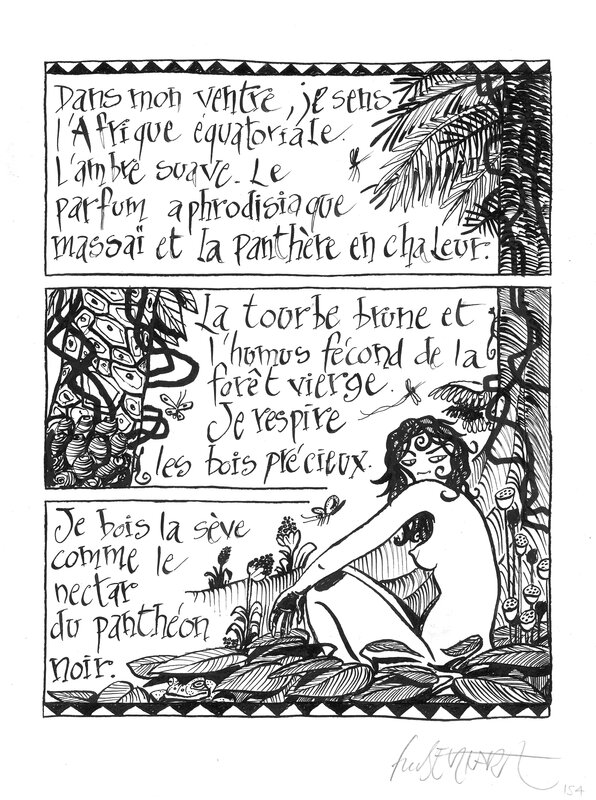 Dans mon ventre, je sens
l'Afrique équatoriale.
L'ambre suave. Le
parfum aphrodisiaque
massaï et la panthère en chaleur.
La tourbe brune et
l'humus fécond de la
forêt vierge.
Je respire
les bois précieux.
Je bois la sève
comme le
nectar
du panthéon
noir.
154